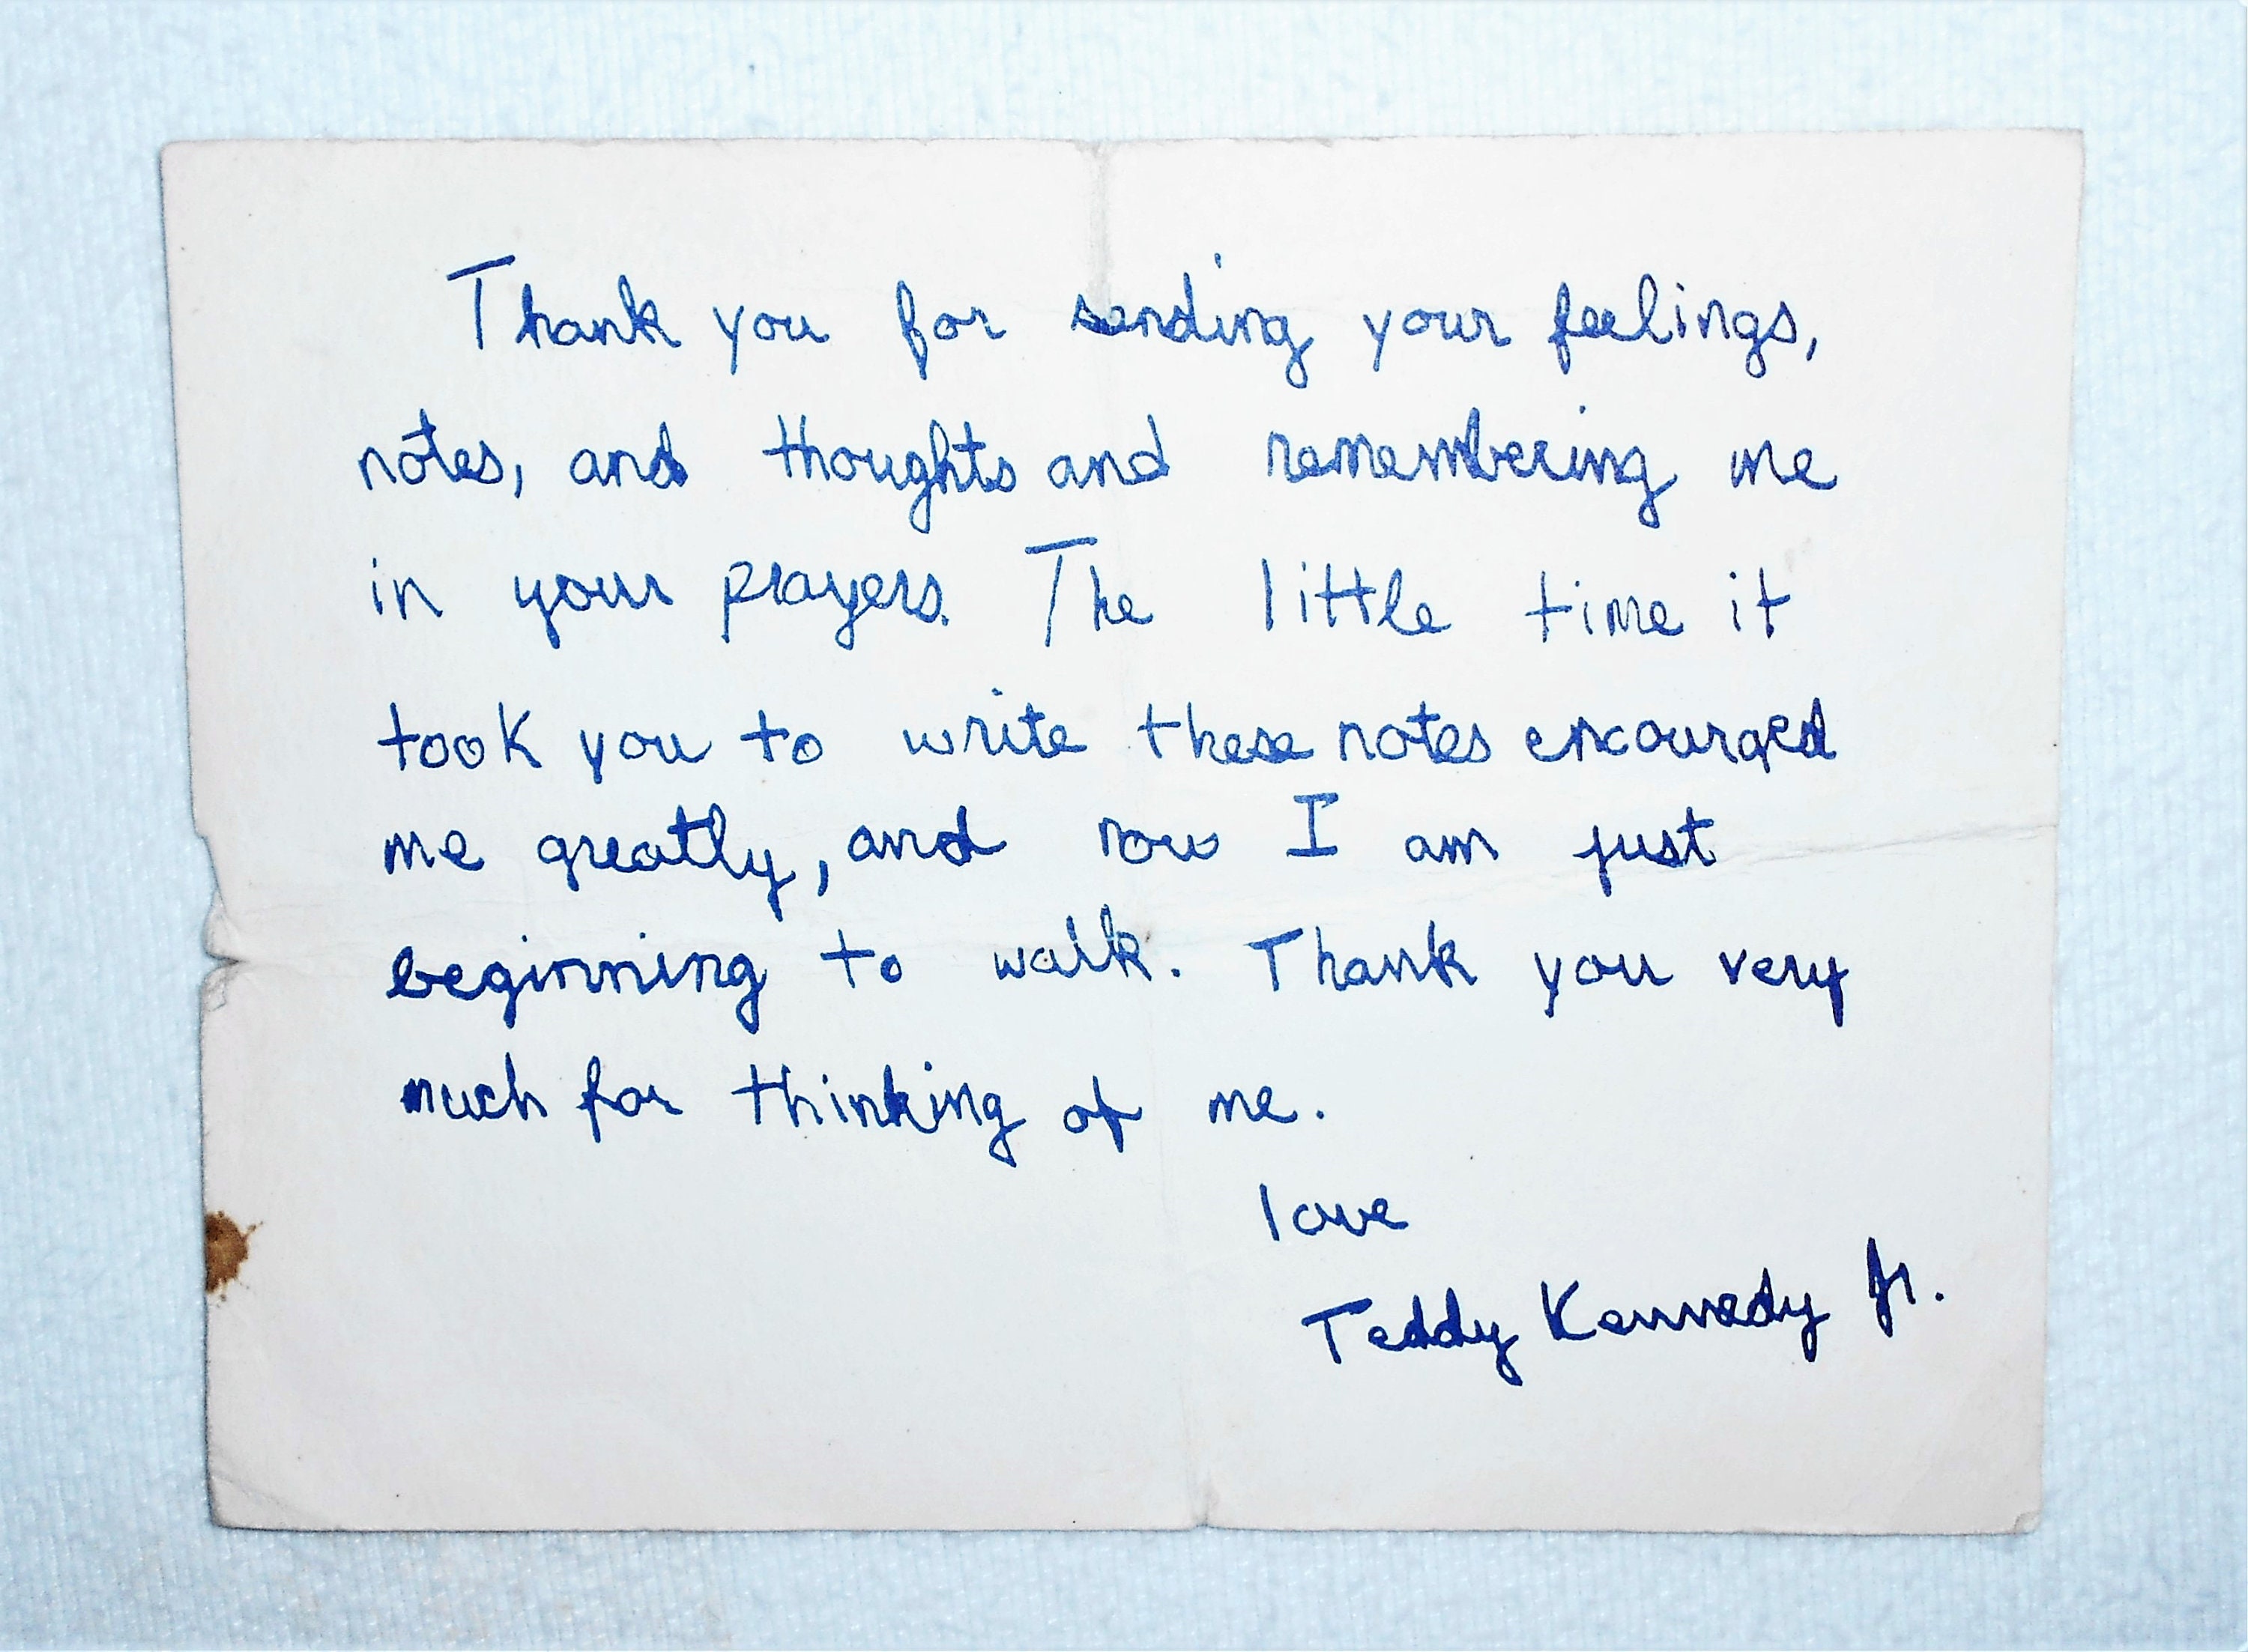 Thank you for sending your feelings,
notes, and thoughts and remembering me
in your prayers. The little time it
took you to write these notes encourged
me greatly, and now I am just
beginning to walk. Thank you very
much for thinking of me.
love
Teddy Kennedy Jr.